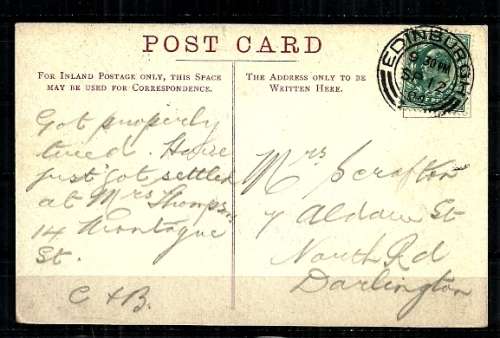 POST CARD
FOR INLAND POSTAGE ONLY, THIS SPACE
MAY BE USED FOR CORRESPONDENCE.
THE ADDRESS ONLY TO BE
WRITTEN HERE.
EDINBURGH
Got properly
tired. Have
just got settled
at Mrs Thompson
14 Montague
St.
C & B.
Mrs Scrafton
7 St
North Rd
Darlington